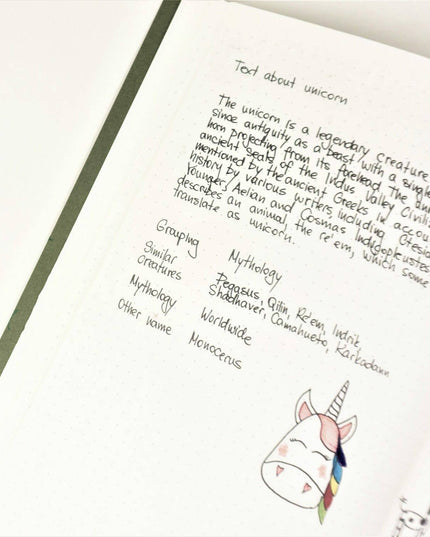 Text about unicorn
The unicorn is a legendary creature
since antiquity as a beast with a single
horn projecting from its forehead. The
ancient seals of the Indus Valley
mentioned by the ancient Greeks in
history by various writers, including
Younger, Aelian and Cosmas Indicopleustes
describes an animal, the re'em, which some
translate as unicorn.
Grouping Mythology
Similar Pegasus, Qilin, Re'em, Indrik,
creatures Shadhavar, Camahueto, Karkadann
Mythology Worldwide
Other name Monocerus